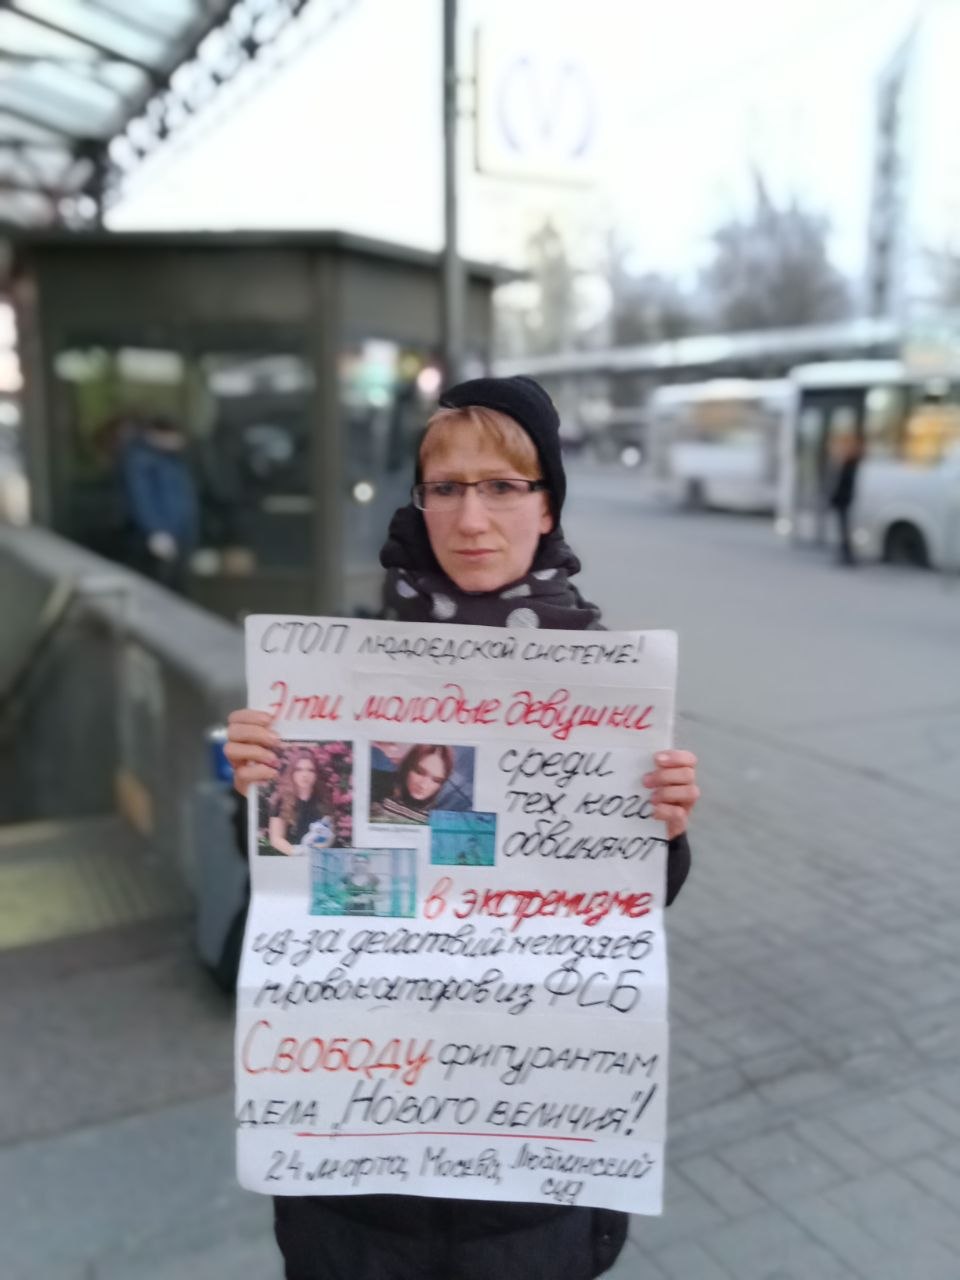 СТОП людоедской системе!
Эти молодые девушки
среди
тех, кого
обвиняют
в экстремизме
из-за действий негодяев
провокаторов из ФСБ
Свободу фигурантам
дела „Нового величия"!
24 марта, Москва, Люблинский
суд